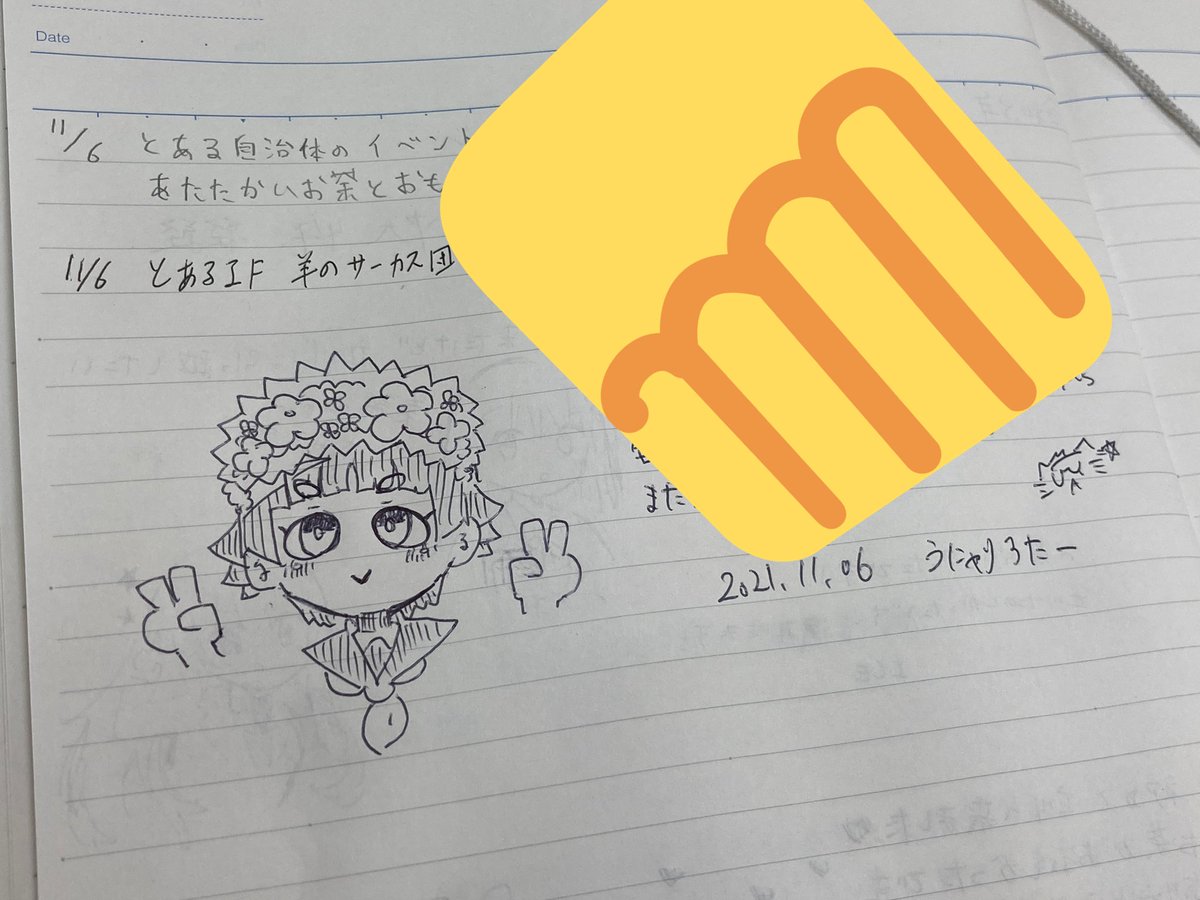 Date
11/6 とある自治体のイベント
あたたかいお茶とおも
11/6 とあるIF 羊のサーカス団
また
2021.11.06 うにゃりろたー